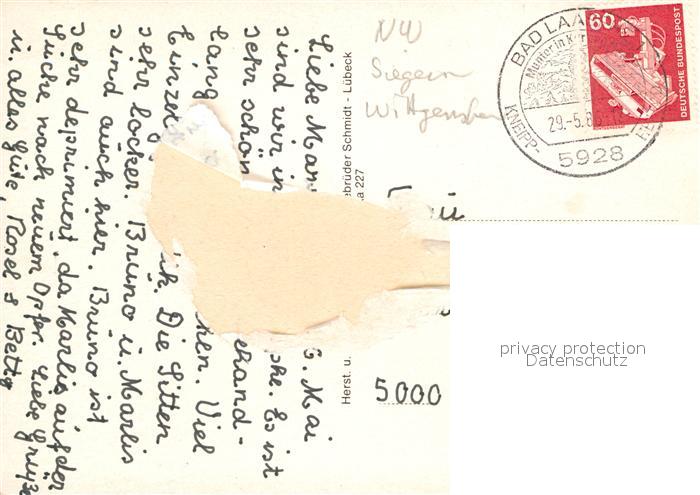 Liebe Mar
6. Mai
sind wir in
che. Es ist
sehr schön
ehand-
lang
chen. Viel
Einzel
ik. Die Sitten
sehr locker. Bruno u. Marlis
sind auch hier. Bruno ist
sehr deprimiert, da Marlis auf der
Suche nach neuem Opfer. Liebe Grüße
u. alles Gute, Rosel & Betti
Herst. u.
ebrüder Schmidt - Lübeck
a 227
NW
Siegen
Wittgenstein
5000
BAD LAA
Munter in K
KNEIPP-
29.-5.8
5928
60
DEUTSCHE BUNDESPOST
privacy protection
Datenschutz